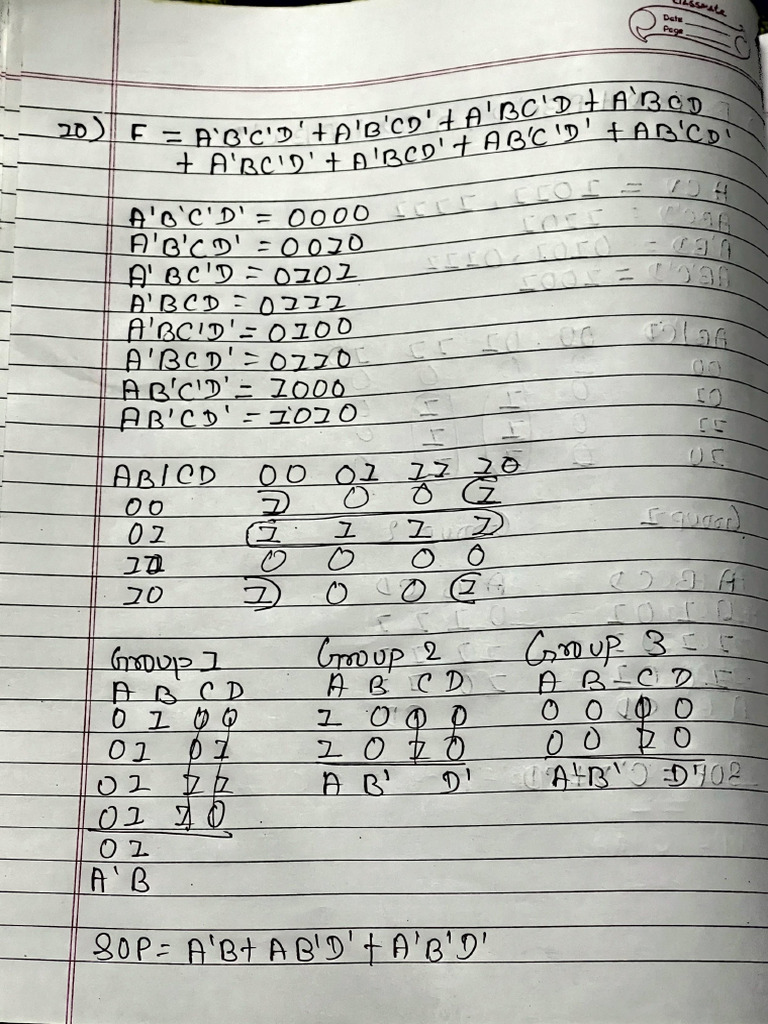 classmate
Date
Page
20) F = A'B'C'D' + A'B'CD' + A'BC'D + A'BCD
+ A'BC'D' + A'BCD' + AB'C'D' + AB'CD'
A'B'C'D' = 0000
A'B'CD' = 0010
A'BC'D = 0101
A'BCD = 0111
A'BC'D' = 0100
A'BCD' = 0110
AB'C'D' = 1000
AB'CD' = 1010
AB/CD 00 01 11 10
00 1 0 0 1
01 1 1 1 1
11 0 0 0 0
10 1 0 0 1
Group 1 Group 2 Group 3
A B C D A B C D A B C D
0 1 0 0 1 0 0 0 0 0 0 0
0 1 0 1 1 0 1 0 0 0 1 0
0 1 1 1 A B' D' A'B' D'
0 1 1 0
0 1
A'B
SOP = A'B + AB'D' + A'B'D'